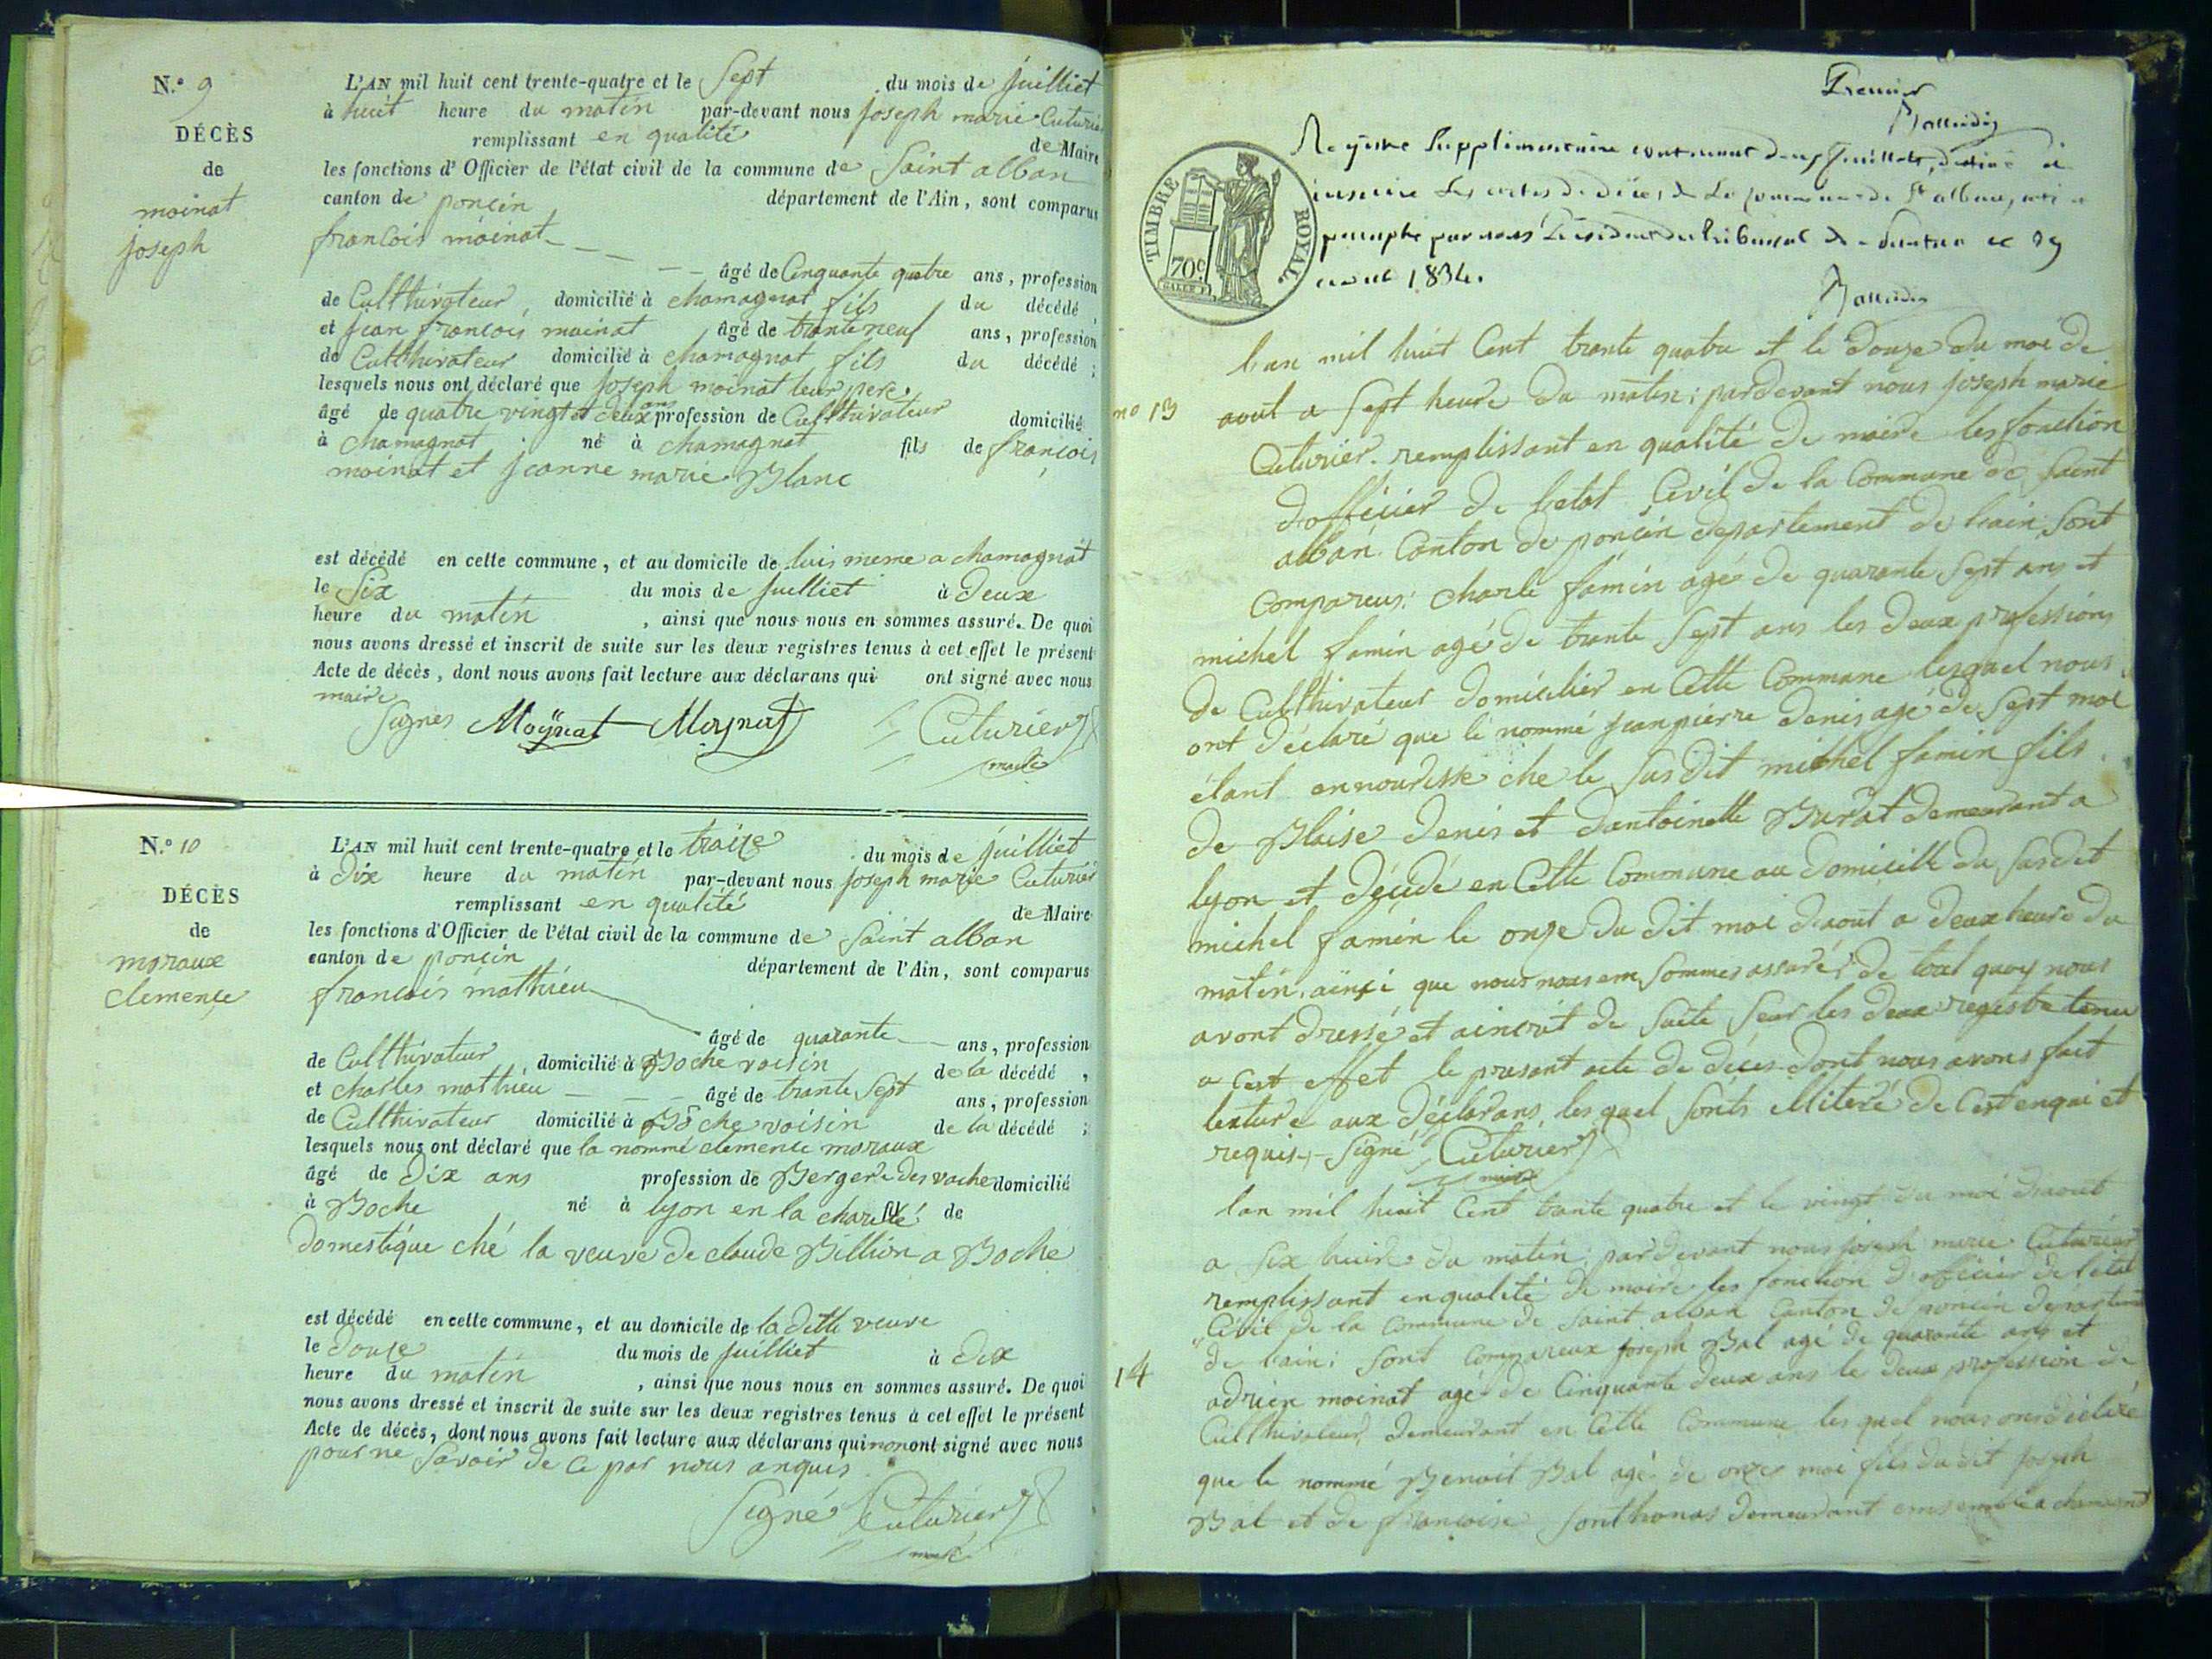 N.° 9
DÉCÈS
de
moinat
joseph
L'AN mil huit cent trente-quatre et le Sept du mois de juilliet
à huit heure du matin par-devant nous joseph marie Cuturier
remplissant en qualité de Maire
les fonctions d'Officier de l'état civil de la commune de Saint alban
canton de poncin département de l'Ain, sont comparus
francois moinat
âgé de Cinquante quatre ans, profession
de Culthivateur, domicilié à chamagnat fils du décédé,
et jean francois moinat âgé de trante neuf ans, profession
de Culthivateur domicilié à chamagnat fils du décédé;
lesquels nous ont déclaré que joseph moinat leur pere
âgé de quatre vingt et deux ans profession de Culthivateur domicilié
à chamagnat né à chamagnat fils de francois
moinat et jeanne marie Blanc
est décédé en cette commune, et au domicile de luis meme a chamagnat
le Six du mois de juilliet à Deux
heure du matin, ainsi que nous nous en sommes assuré. De quoi
nous avons dressé et inscrit de suite sur les deux registres tenus à cet effet le présent
Acte de décès, dont nous avons fait lecture aux déclarans qui ont signé avec nous
maire
Signes Moÿnat Moynat Cuturier
maire
N.° 10
DÉCÈS
de
moraux
clemence
L'AN mil huit cent trente-quatre et le traize du mois de juilliet
à dix heure du matin par-devant nous joseph marie Cuturier
remplissant en qualité de Maire
les fonctions d'Officier de l'état civil de la commune de Saint alban
canton de poncin département de l'Ain, sont comparus
francois mathieu
âgé de quarante ans, profession
de Culthivateur, domicilié à Boche voisin de la décédé,
et charles mathieu âgé de trante Sept ans, profession
de Culthivateur domicilié à Boche voisin de la décédé;
lesquels nous ont déclaré que la nommé clemence moraux
âgé de dix ans profession de Bergere des vache domicilié
à Boche né à lyon en la charité fil de
domestique ché la veuve de claude Billion a Boche
est décédé en cette commune, et au domicile de la ditte veuve
le douze du mois de juilliet à dix
heure du matin, ainsi que nous nous en sommes assuré. De quoi
nous avons dressé et inscrit de suite sur les deux registres tenus à cet effet le présent
Acte de décès, dont nous avons fait lecture aux déclarans qui non ont signé avec nous
pour ne Savoir de ce par nous anquis
Signé Cuturier
maire
Premier
TIMBRE ROYAL
70c
Registre Supplémentaire contenant deux feuillets, destiné à
inscrire les actes de décès de la commune de St alban,
paraphé par nous Président du tribunal de Nantua ce 29
avril 1834.
no 13
lan mil huit Cent trante quatre et le Douze du moi de
aout a Sept heure du matin; pardevant nous joseph marie
Cuturier remplissant en qualité de maire les fonction
dofficier de letat Civil de la Commune de Saint
alban Canton de poncin departement de lain; Sont
Compareus; charle famin agé de quarante Sept ans et
michel famin agé de trante Sept ans les deux professions
de Culthivateur domicilier en Cette Commune lesquel nous
ont déclaré que le nommé jeanpierre denis agé de Sept moi
étant ennourisse che le Sus dit michel famin fils
de Blaise denis et dantoinette Burdat demeurant a
lyon et décédé en Cette Commune au domicille du Susdit
michel famin le onze du dit moi daout a deux heure du
matin, ainxi que nous nous em Sommes assurés de tout quoy nous
avont dressé et aincrit de Suite Seur les deux registre tenu
a Cest effet le presant acte de décès dont nous avons fait
lecture aux déclarans, lesquel Sonts illiteré de Cest enqui et
requis, Signé Cuturier
maire
14
lan mil huit Cent trante quatre et le vingt du moi daout
a Six heure du matin; pardevant nous joseph marie Cuturier
remplissant en qualité de maire les fonction d officier de l'état
Civil de la Commune de Saint alban Canton de poncin departement
de lain; Sont Compareux joseph Bal agé de quarante ans et
adrien moinat agé de Cinquante deux ans le deux profession de
Culthivateur, demeurant en Cette Commune lesquel nous ons déclaré
que le nommé Benoit Bal agé de onze moi fils du dit joseph
Bal et de francoise Sonthonas demeurant ensemble a chamagnat